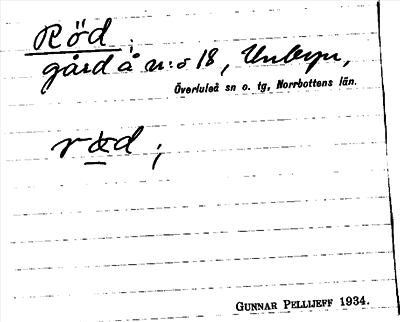 Röd ;
gård å n:o 18, Unbyn,
Överluleå sn o. tg, Norrbottens län.
röd ;
GUNNAR PELLIJEFF 1934.